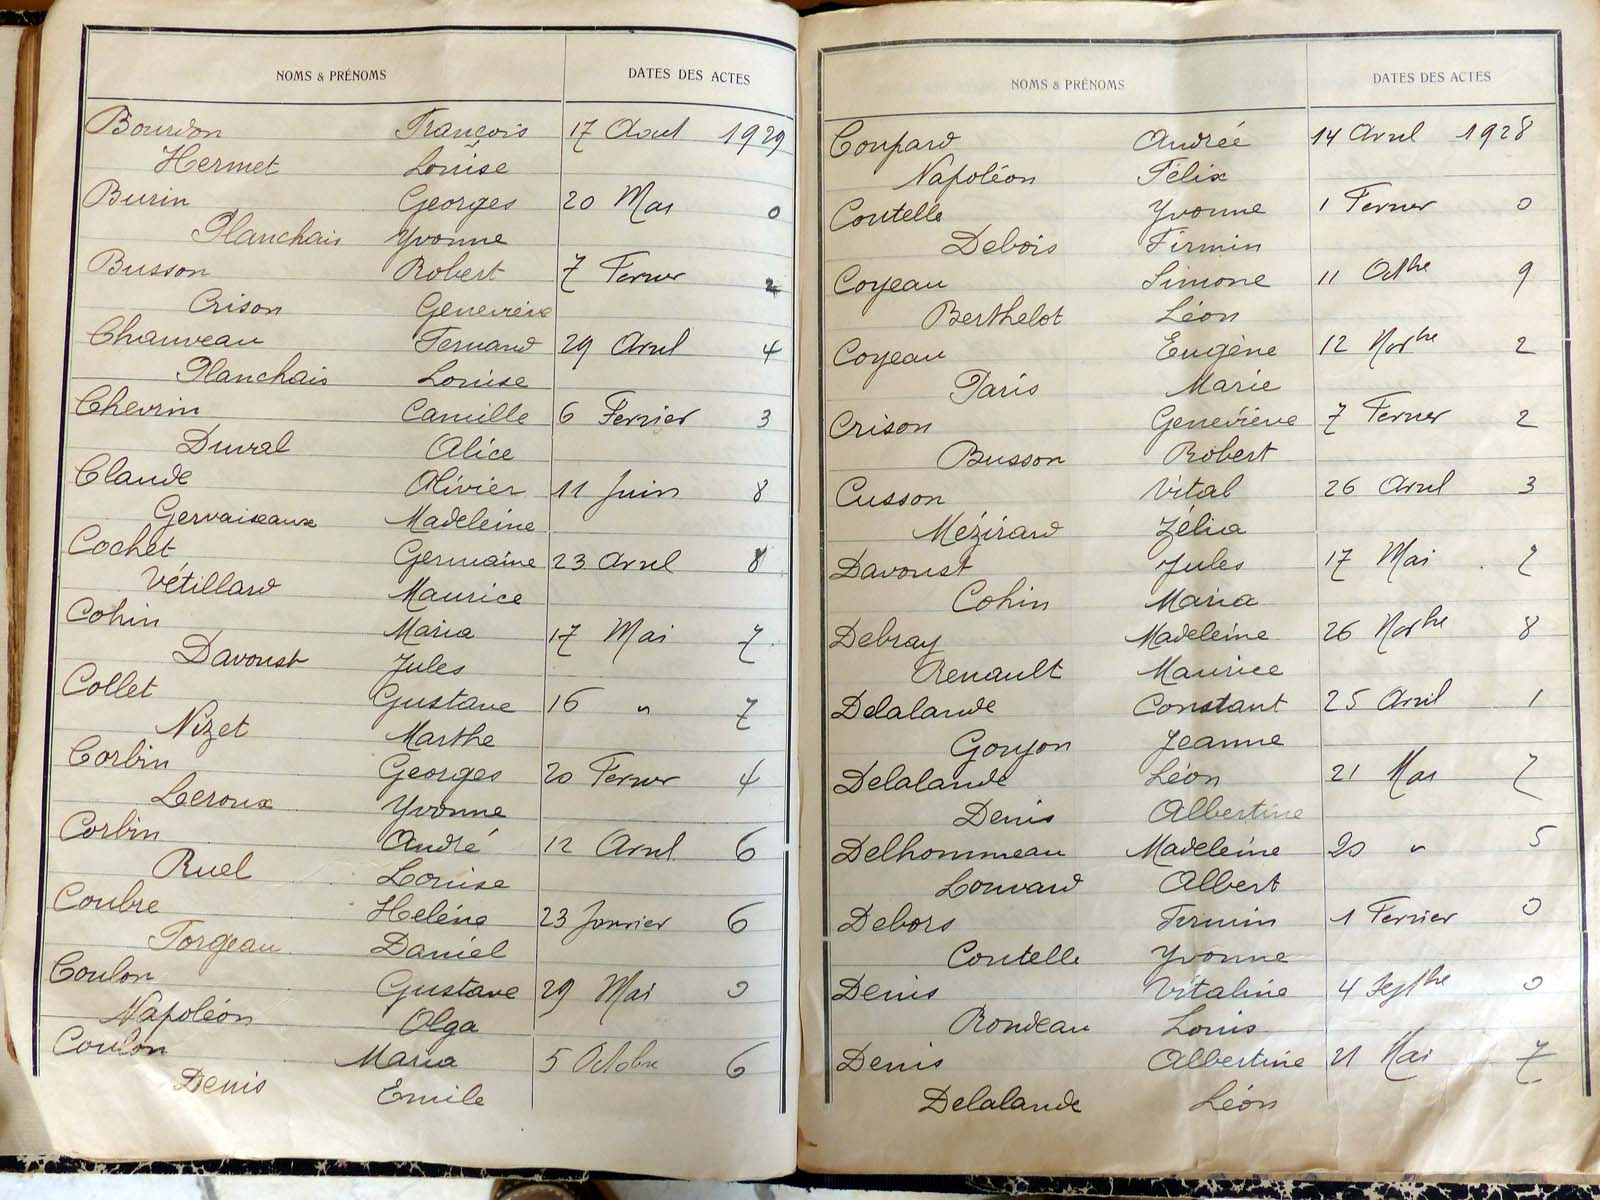 NOMS & PRÉNOMS DATES DES ACTES
Bourdon François 17 Avril 1929
Hermet Louise
Burin Georges 20 Mai 0
Planchais Yvonne
Busson Robert 7 Fevrier 2
Crison Geneviève
Chauveau Fernand 29 Avril 4
Planchais Louise
Chevrin Camille 6 Fevrier 3
Duval Alice
Claude Olivier 11 Juin 8
Gervaiseaux Madeleine
Cochet Germaine 23 Avril 8
Vétillard Maurice
Cohin Maria 17 Mai 7
Davoust Jules
Collet Gustave 16 " 7
Nizet Marthe
Corbin Georges 20 Fevrier 4
Leroux Yvonne
Corbin André 12 Avril 6
Ruel Louise
Coubre Heléne 23 Janvier 6
Torgeau Daniel
Coulon Gustave 29 Mai 0
Napoléon Olga
Coulon Maria 5 Octobre 6
Denis Emile
NOMS & PRÉNOMS DATES DES ACTES
Coupard Andrée 14 Avril 1928
Napoléon Félix
Coutelle Yvonne 1 Fevrier 0
Debois Firmin
Coyeau Simone 11 Octbre 9
Berthelot Léon
Coyeau Eugène 12 Novbre 2
Paris Marie
Crison Geneviève 7 Fevrier 2
Busson Robert
Cusson Vital 26 Avril 3
Mézirard Zélia
Davoust Jules 17 Mai 7
Cohin Maria
Debray Madeleine 26 Novbre 8
Renault Maurice
Delalande Constant 25 Avril 1
Goujon Jeanne
Delalande Léon 21 Mai 7
Denis Albertine
Delhommeau Madeleine 20 " 5
Louvard Albert
Debors Firmin 1 Fevrier 0
Coutelle Yvonne
Denis Vitaline 4 Septbre 0
Rondeau Louis
Denis Albertine 21 Mai 7
Delalande Léon